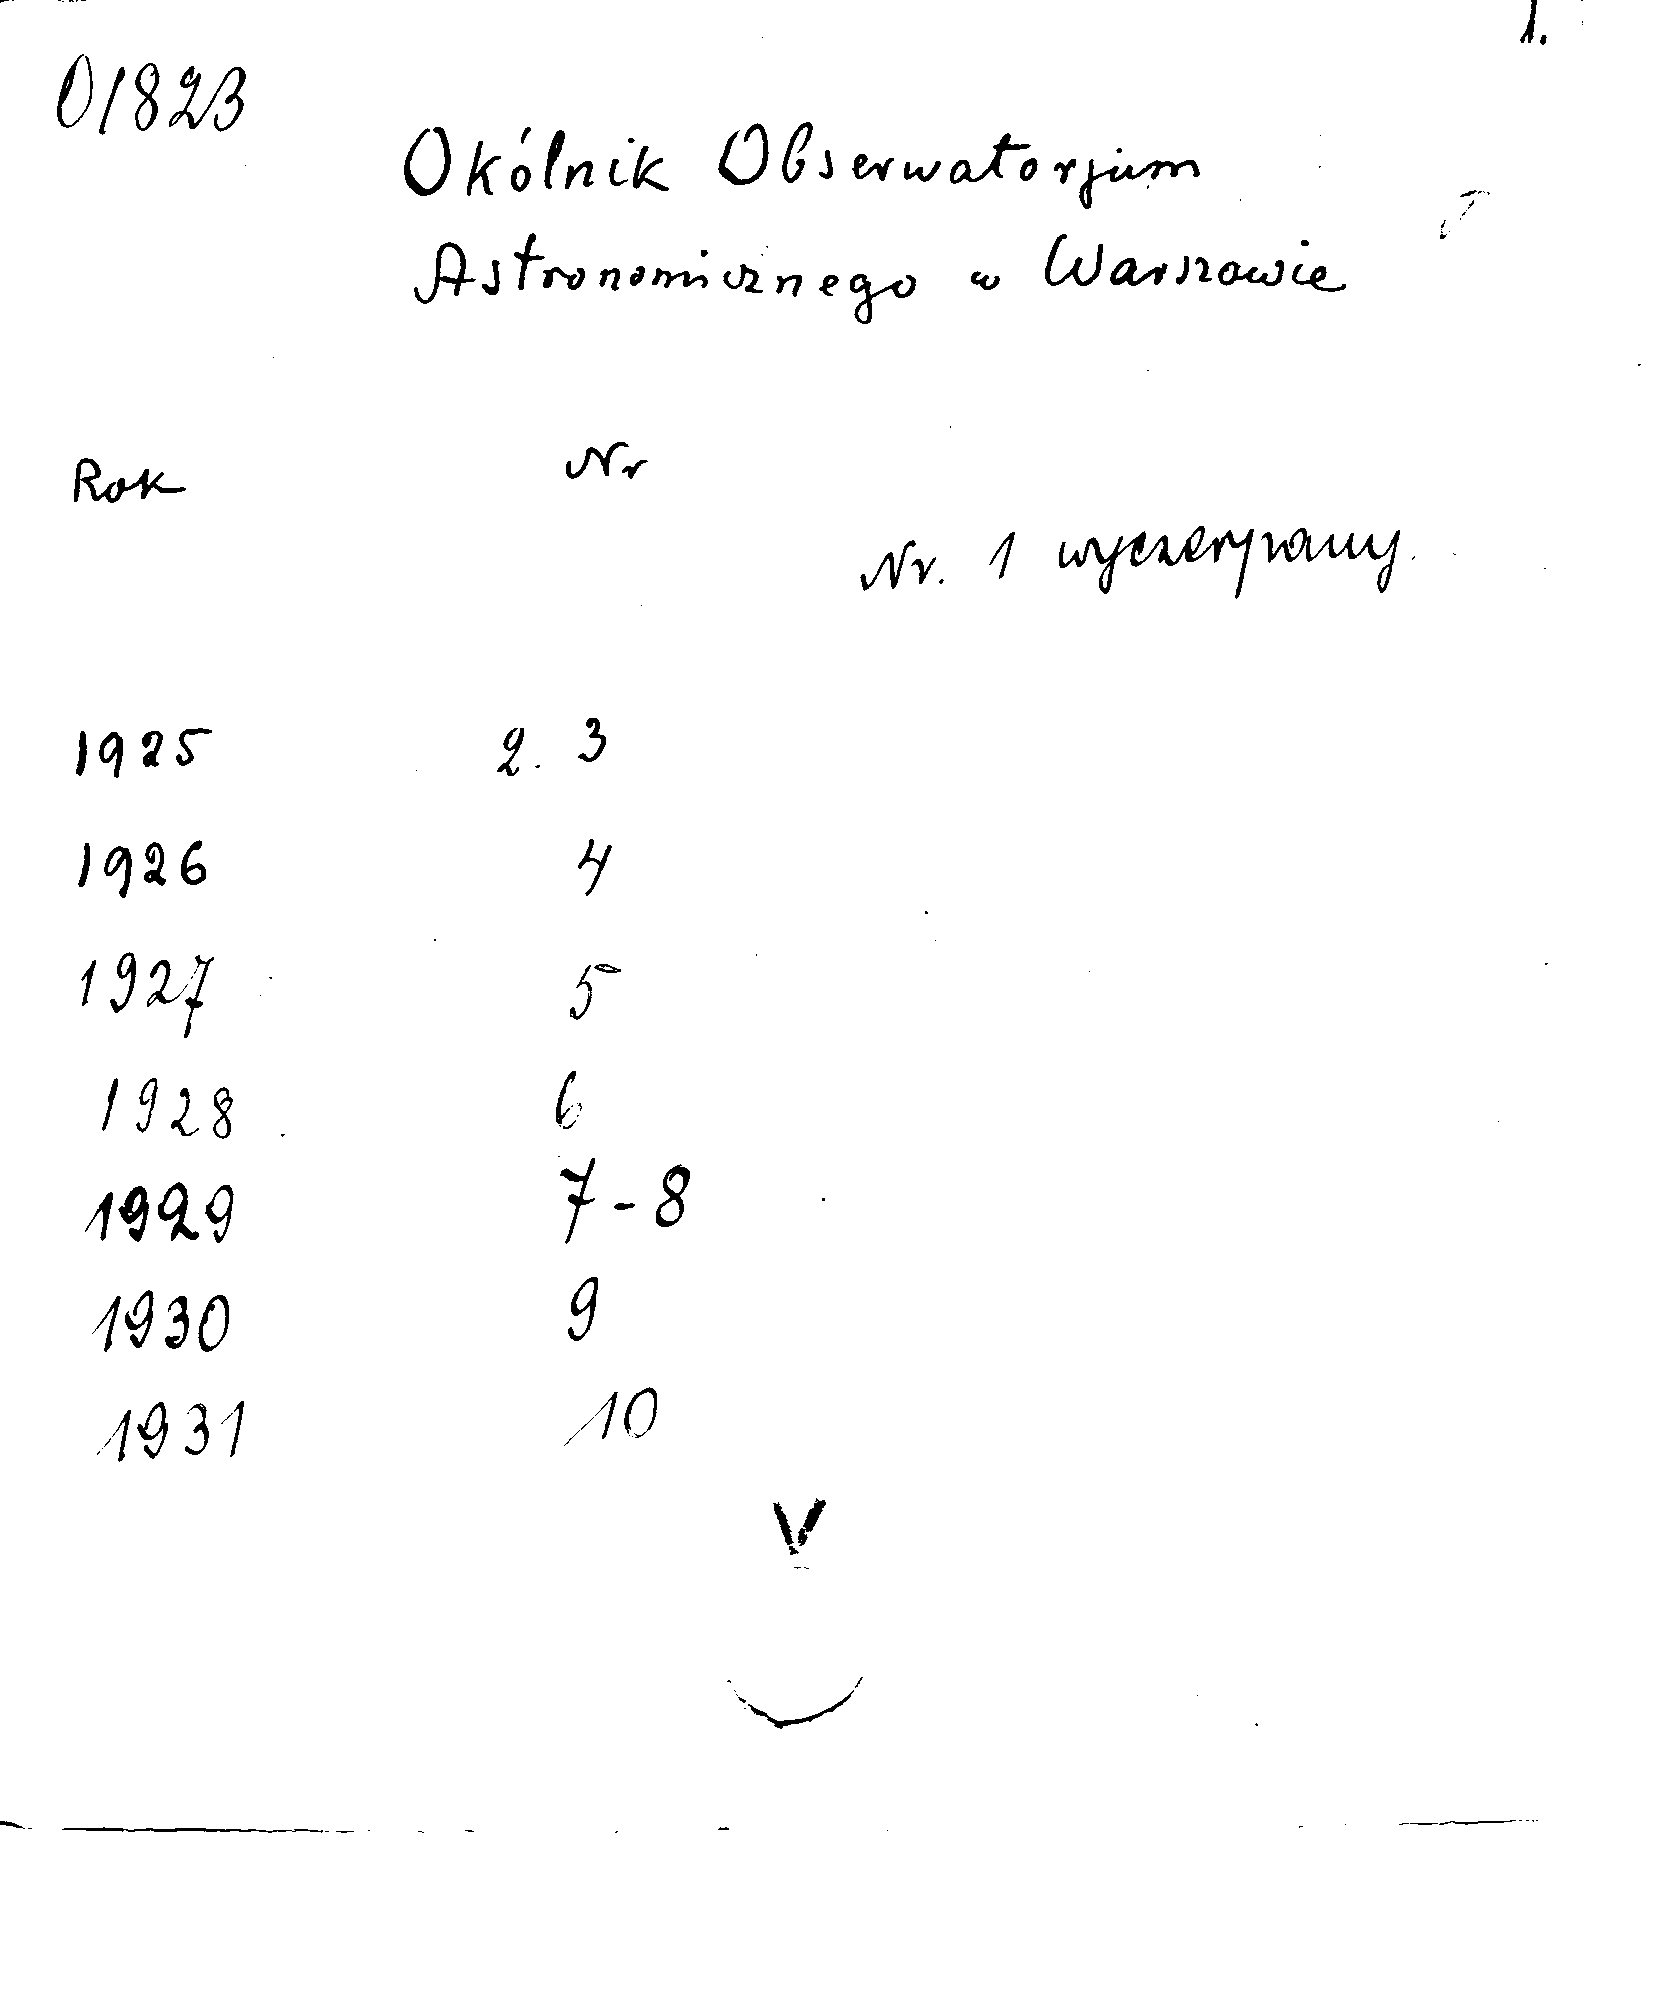 1.
01823
Okólnik Obserwatorjum
Astronomicznego w Warszawie
Rok Nr
Nr. 1 wyczerpany.
1925 2. 3
1926 4
1927 5
1928 6
1929 7-8
1930 9
1931 10
V